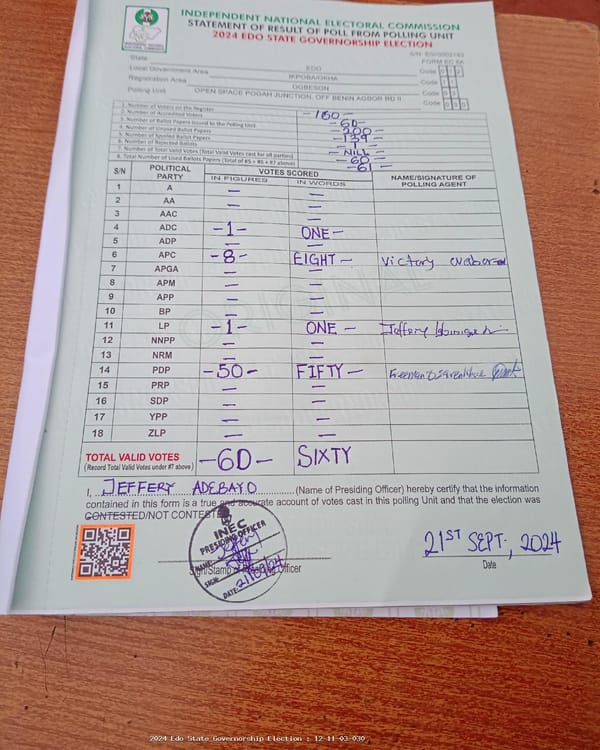 INDEPENDENT NATIONAL ELECTORAL COMMISSION
STATEMENT OF RESULT OF POLL FROM POLLING UNIT
2024 EDO STATE GOVERNORSHIP ELECTION
FORM EC 8A
State EDO Code
Local Government Area IKPOBA/OKHA Code
Registration Area OGBESON Code
Polling Unit OPEN SPACE POGAH JUNCTION, OFF BENIN AGBOR RD II Code
1. Number of Voters on the Register -160-
2. Number of Accredited Voters -60-
3. Number of Ballot Papers Issued to the Polling Unit -200-
4. Number of Unused Ballot Papers -139-
5. Number of Spoiled Ballot Papers -1-
6. Number of Rejected Ballots -NILL-
7. Number of Total Valid Votes (Total Valid Votes cast for all parties) -60-
8. Total Number of Used Ballots Papers (Total of #5 + #6 + #7 above) -61-
S/N POLITICAL PARTY VOTES SCORED NAME/SIGNATURE OF POLLING AGENT
IN FIGURES IN WORDS
1 A — —
2 AA — —
3 AAC — —
4 ADC -1- ONE-
5 ADP — —
6 APC -8- EIGHT- Victory
7 APGA — —
8 APM — —
9 APP — —
10 BP — —
11 LP -1- ONE- Jeffery
12 NNPP — —
13 NRM — —
14 PDP -50- FIFTY-
15 PRP — —
16 SDP — —
17 YPP — —
18 ZLP — —
TOTAL VALID VOTES -60- SIXTY
(Record Total Valid Votes under #7 above)
I, JEFFERY ADEBAYO (Name of Presiding Officer) hereby certify that the information
contained in this form is a true and accurate account of votes cast in this polling Unit and that the election was
CONTESTED/NOT CONTESTED
INEC
PRESIDING OFFICER
NAME:
SIGN:
DATE: 21/09/24
Sign/Stamp of Presiding Officer
21ST SEPT., 2024
Date
2024 Edo State Governorship Election : 12-11-03-030